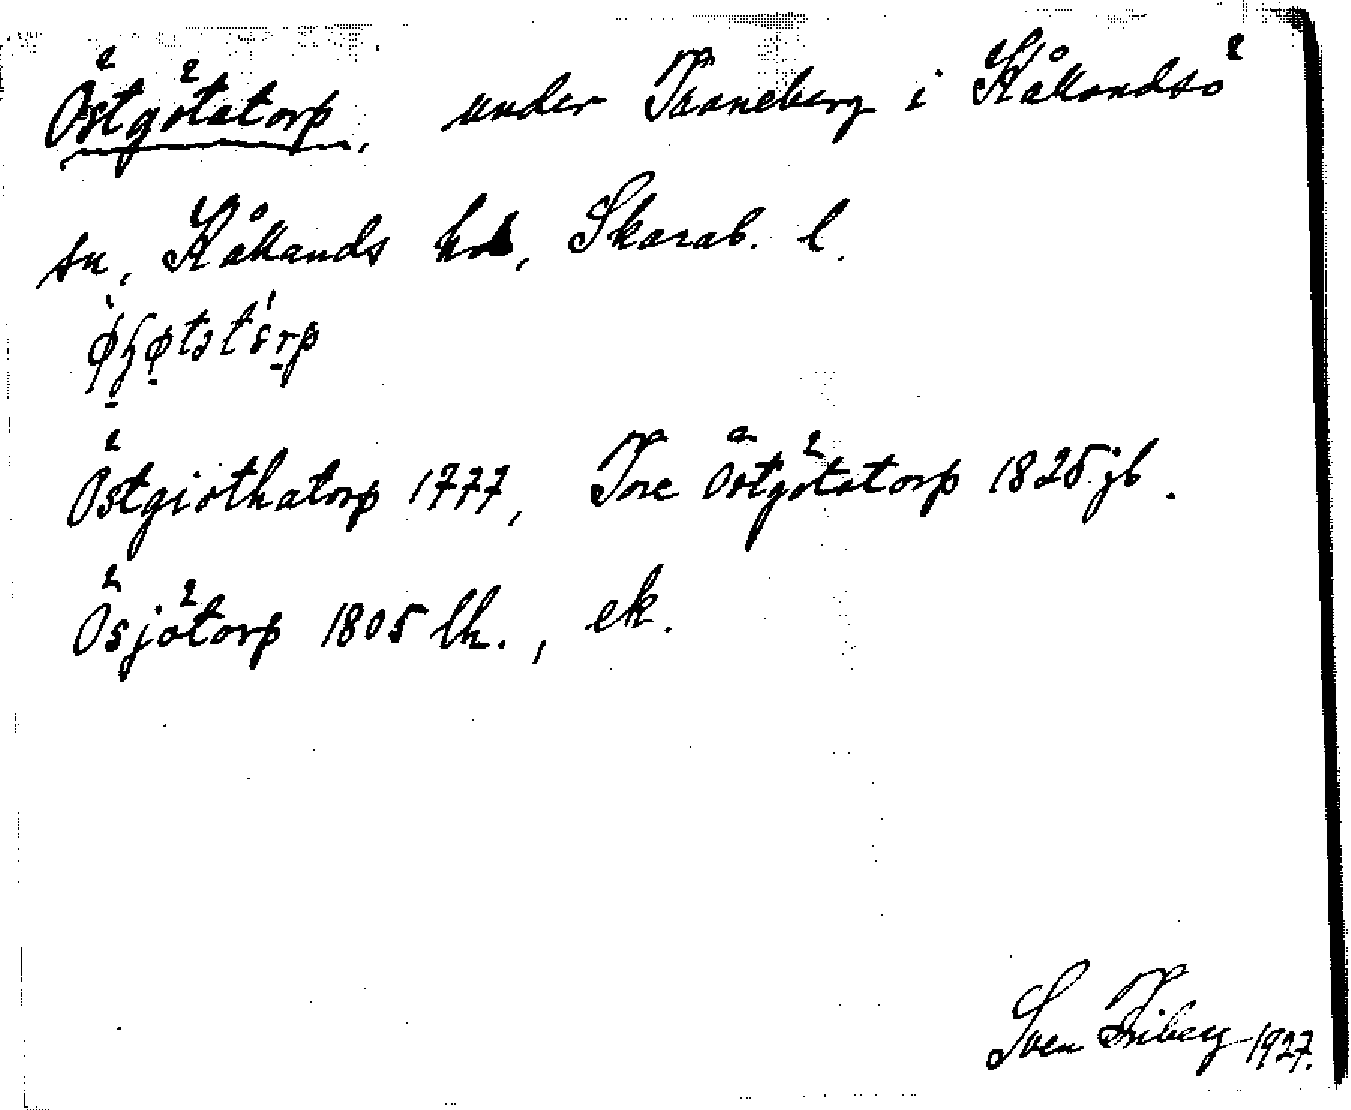 Östgötatorp, under Traneberg i Kållandsö
sn, Kållands hd, Skarab. l.
Östgiöthatorp 1777, Tore Östgötatorp 1825 jb.
Ösjötorp 1805 lh., ek.
Sven Friberg 1927.